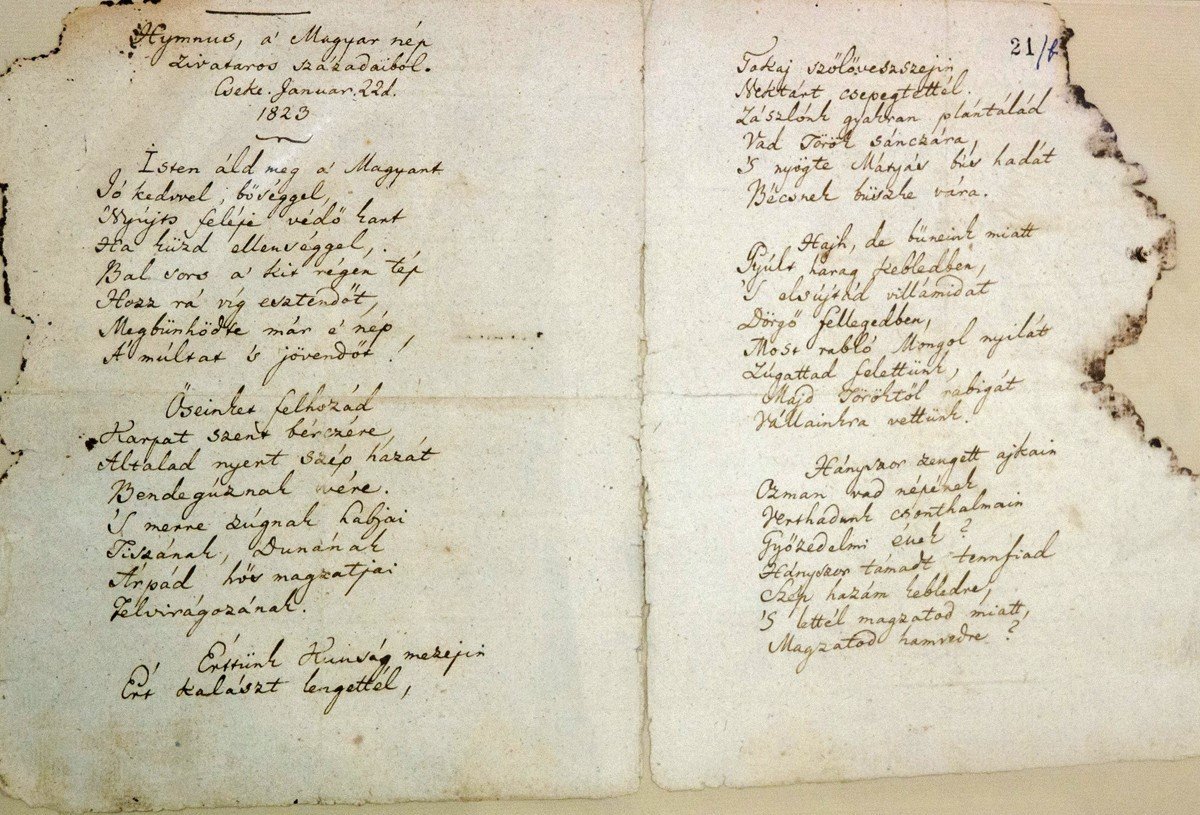 Hymnus, a' Magyar nép
zivataros századaiból.
Cseke. Januar. 22d.
1823
Isten áld meg a' Magyart
Jó kedvvel, bőséggel,
Nyújts feléje védő kart
Ha küzd ellenséggel,
Bal sors a' kit régen tép
Hozz rá víg esztendőt,
Megbünhödte már e' nép
A' múltat 's jövendőt!
Őseinket felhozád
Kárpát szent bérczére
Általad nyert szép hazát
Bendegúznak vére.
'S merre zúgnak habjai
Tiszának, Dunának
Árpád hős magzatjai
Felvirágozának.
Érttünk Kunság mezejin
Ért kalászt lengettél,
21/b
Tokaj szőlővesszejin
Nektárt csepegtettél.
Zászlónk gyakran plántálád
Vad Török sánczára,
'S nyögte Mátyás bús hadát
Bécsnek büszke vára.
Hajh, de bűneink miatt
Gyúlt harag kebledben,
'S elsújtád villámidat
Dörgő fellegedben,
Most rabló Móngol nyilát
Zúgattad felettünk,
Majd Töröktől rabigát
Vállainkra vettünk.
Hányszor zengett ajkain
Ozman vad népének
Vert hadunk csonthalmain
Győzedelmi ének?
Hányszor támadt tennfiad
Szép hazám kebledre,
'S lettél magzatod miatt,
Magzatod hamvedre?